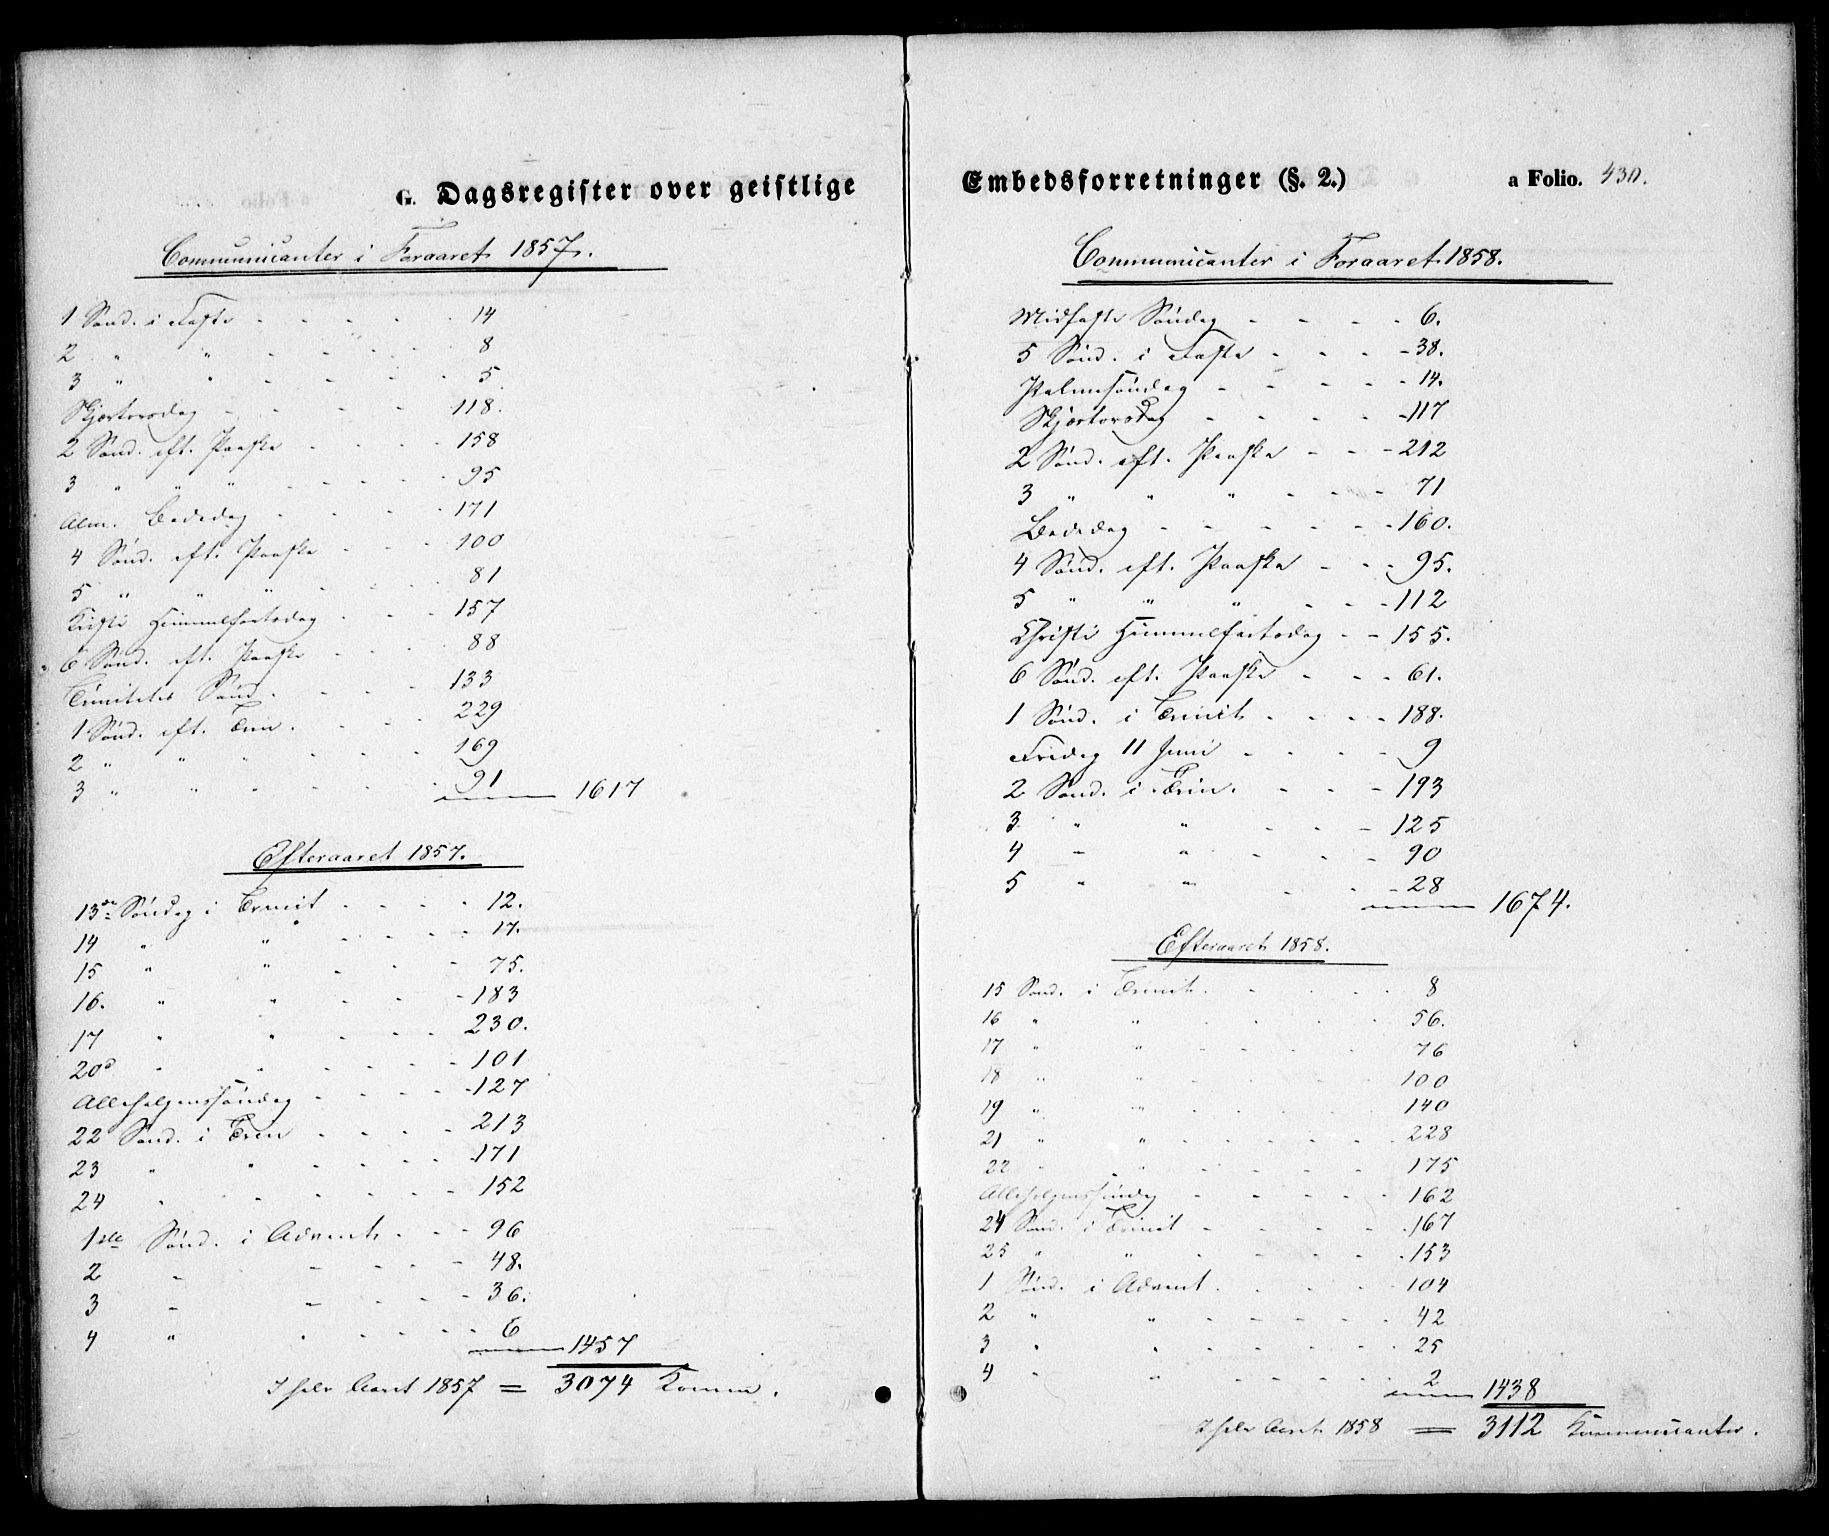 G. Dagsregister over geistlige
Communicanter i Foraaret 1857.
1 Sønd. i Faste - - - - - 14
2 " " - - - - - 8
3 " " - - - - - 5
Skjærtorsdag - - - - - 118.
2 Sønd. eft. Paaske - - - - 158
3 " " " - - - - 95
Alm. Bededag - - - - - 171
4 Sønd. eft. Paaske - - - 100
5 " " " - - - 81
Kristi Himmelfartsdag - - - 157
6 Sønd. eft. Paaske - - - 88
Trinitatis Sønd. - - - - 133
1 Sønd. eft. Trin. - - - 229
2 " " - - - - 169
3 " " " - - - - 91 1617
Efteraaret 1857.
13de Søndag i Trinit - - - - 12.
14 " " - - - - 17.
15 " " - - - 75.
16. " " - - - - 183
17 " " - - - 230.
20d " " - - - - 101
Allehelgenssøndag - - - - - 127
22 Sønd. i Trin - - - - 213
23 " " - - - - - 171
24 " " - - - - - 152
1ste Sønd. i Advent - - - 96
2 - - - - - 48.
3 - - - - - 36.
4 " " - - - - - 6 1457
I hele Aaret 1857 = 3074 Komm.
Embedsforretninger (§. 2.)
a Folio. 430.
Communicanter i Foraaret 1858.
Midfaste Søndag - - - - 6.
5 Sønd. i Faste - - - - 38.
Palmesøndag - - - - - 14.
Skjærtorsdag - - - - - 117
2 Sønd. eft. Paaske - - - 212
3 " " " - - - 71
Bededag - - - - - - 160.
4 Sønd. eft. Paaske - - - 95.
5 " " " - - - 112
Christi Himmelfartsdag - - 155.
6 Sønd. eft. Paaske - - - 61.
1 Sønd. i Trinit - - - - 188.
Fredag 11 Juni - - - - 9
2 Sønd. i Trin. - - - 193
3 " " - - - 125
4 " " - - - 90
5 " " - - - 28 1674.
Efteraaret 1858.
15 Sønd. i Trinit. - - - - 8
16 " " - - - - 56.
17 " " - - - - 76
18 " " - - - - 100
19 " " - - - - 140
21 " " - - - - - 228
22 " " - - - - - 175
Allehelgenssøndag - - - - - 162
24 Sønd. i Trinit - - - - 167
25 " " - - - - - 153
1 Sønd. i Advent - - - - 104
2 " " - - - - - 42
3 " " - - - - - 25
4 " " - - - - 2 1438
I hele Aaret 1858 = 3112 Kommunicanter.